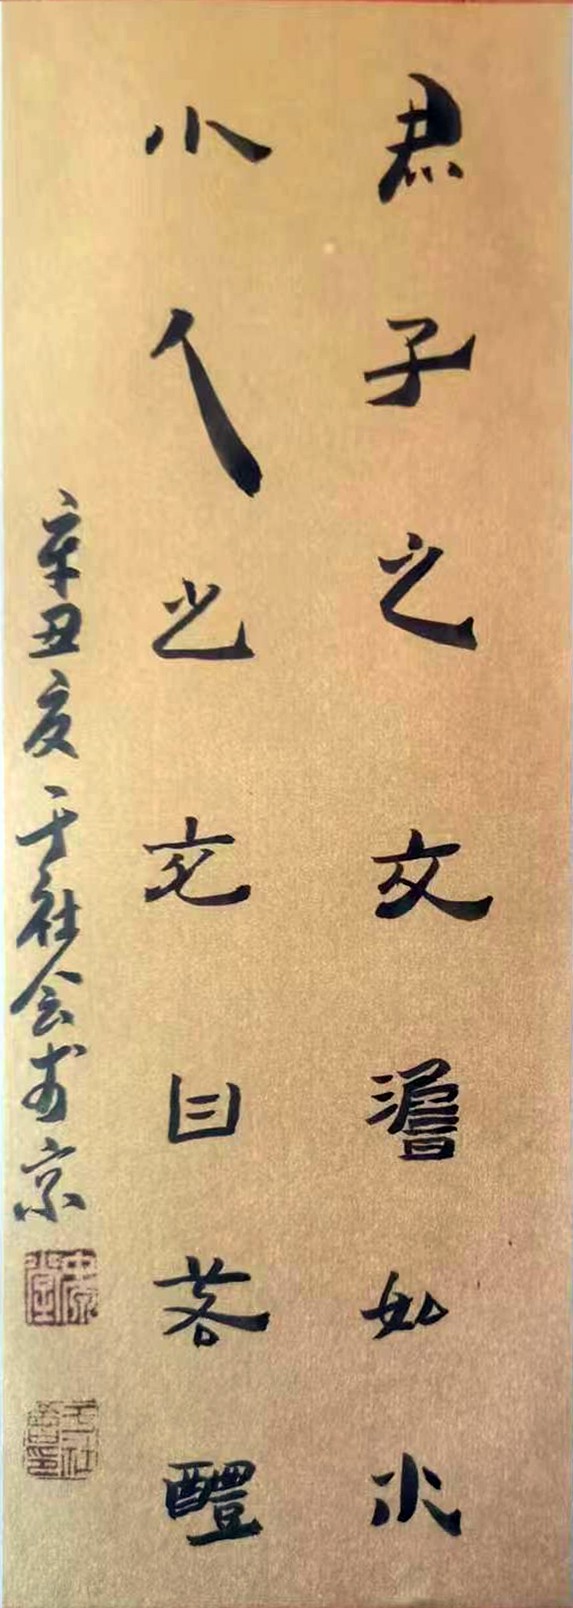 君子之交澹如水
小人之交甘若醴
辛丑夏于社会京